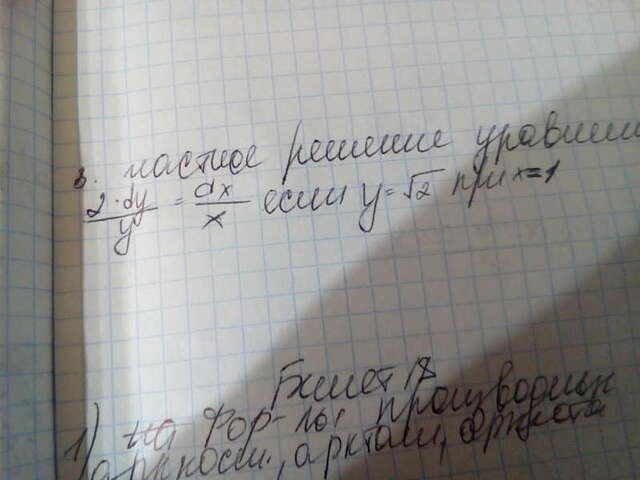 3. частное решение уравнен
2·dy/y = dx/x если y=√2 при x=1
Билет 18
1) на фор-лы производных
арккоси., арктан.,